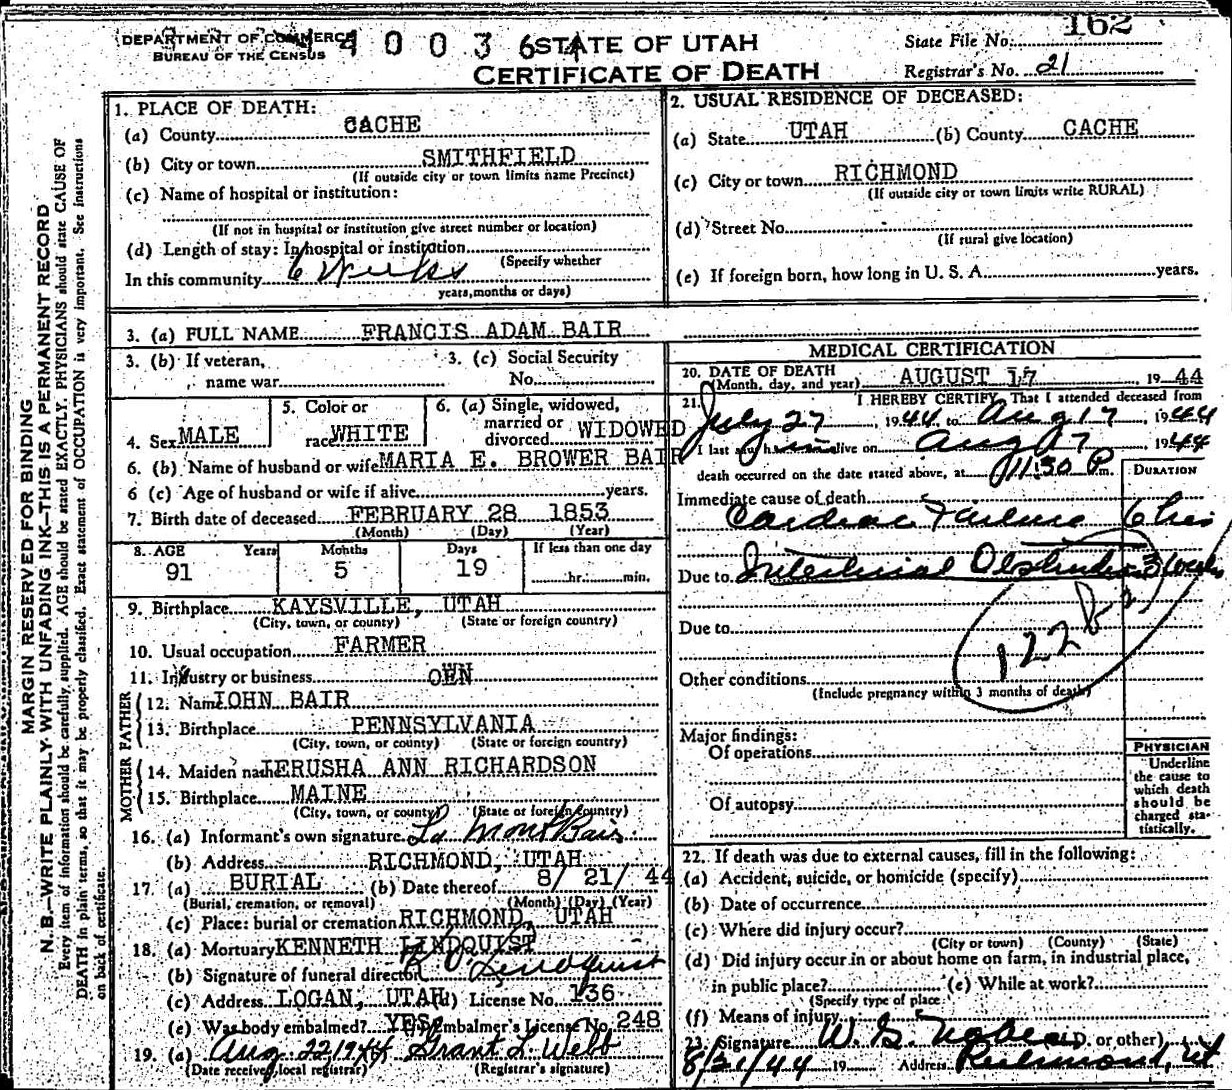 DEPARTMENT OF COMMERCE
BUREAU OF THE CENSUS
4 0 0 3 6
STATE OF UTAH
CERTIFICATE OF DEATH
State File No. 162
Registrar's No. 21
MARGIN RESERVED FOR BINDING
N. B.—WRITE PLAINLY WITH UNFADING INK—THIS IS A PERMANENT RECORD
Every item of information should be carefully supplied. AGE should be stated EXACTLY. PHYSICIANS should state CAUSE OF
DEATH in plain terms, so that it may be properly classified. Exact statement of OCCUPATION is very important. See instructions
on back of certificate.
1. PLACE OF DEATH:
(a) County CACHE
(b) City or town SMITHFIELD
(If outside city or town limits name Precinct)
(c) Name of hospital or institution:
(If not in hospital or institution give street number or location)
(d) Length of stay: In hospital or institution
(Specify whether
In this community 6 Weeks
years, months or days)
2. USUAL RESIDENCE OF DECEASED:
(a) State UTAH (b) County CACHE
(c) City or town RICHMOND
(If outside city or town limits write RURAL)
(d) Street No.
(If rural give location)
(e) If foreign born, how long in U. S. A. years.
3. (a) FULL NAME FRANCIS ADAM BAIR
3. (b) If veteran, name war
3. (c) Social Security No.
4. Sex MALE
5. Color or race WHITE
6. (a) Single, widowed, married or divorced WIDOWED
6. (b) Name of husband or wife MARIA E. BROWER BAIR
6 (c) Age of husband or wife if alive years.
7. Birth date of deceased FEBRUARY 28 1853
(Month) (Day) (Year)
8. AGE Years Months Days If less than one day
91 5 19 hr. min.
9. Birthplace KAYSVILLE, UTAH
(City, town, or county) (State or foreign country)
10. Usual occupation FARMER
11. Industry or business OWN
FATHER
12. Name JOHN BAIR
13. Birthplace PENNSYLVANIA
(City, town, or county) (State or foreign country)
MOTHER
14. Maiden name JERUSHA ANN RICHARDSON
15. Birthplace MAINE
(City, town, or county) (State or foreign country)
16. (a) Informant's own signature La Mont Bair
(b) Address RICHMOND, UTAH
17. (a) BURIAL (b) Date thereof 8/ 21/ 44
(Burial, cremation, or removal) (Month) (Day) (Year)
(c) Place: burial or cremation RICHMOND, UTAH
18. (a) Mortuary KENNETH LINDQUIST
(b) Signature of funeral director Lindquist
(c) Address LOGAN, UTAH (d) License No. 136
(e) Was body embalmed? YES Embalmer's License No. 248
19. (a) Aug. 22 1944 Grant L. Webb
(Date received local registrar) (Registrar's signature)
MEDICAL CERTIFICATION
20. DATE OF DEATH
(Month, day, and year) AUGUST 17, 1944
21. I HEREBY CERTIFY, That I attended deceased from
July 27, 1944, to Aug 17, 1944
I last saw him alive on Aug 17, 1944
death occurred on the date stated above, at 11:30 P m.
DURATION
Immediate cause of death
Cardiac Failure 6 hrs
Due to Intestinal Obstruction 3 weeks
Due to
122 B
Other conditions
(Include pregnancy within 3 months of death)
Major findings:
Of operations
Of autopsy
PHYSICIAN
Underline
the cause to
which death
should be
charged sta-
tistically.
22. If death was due to external causes, fill in the following:
(a) Accident, suicide, or homicide (specify)
(b) Date of occurrence
(c) Where did injury occur?
(City or town) (County) (State)
(d) Did injury occur in or about home on farm, in industrial place,
in public place? (e) While at work?
(Specify type of place)
(f) Means of injury
23. Signature W. G. (M.D. or other)
8/21/44 19 Address Richmond, Ut